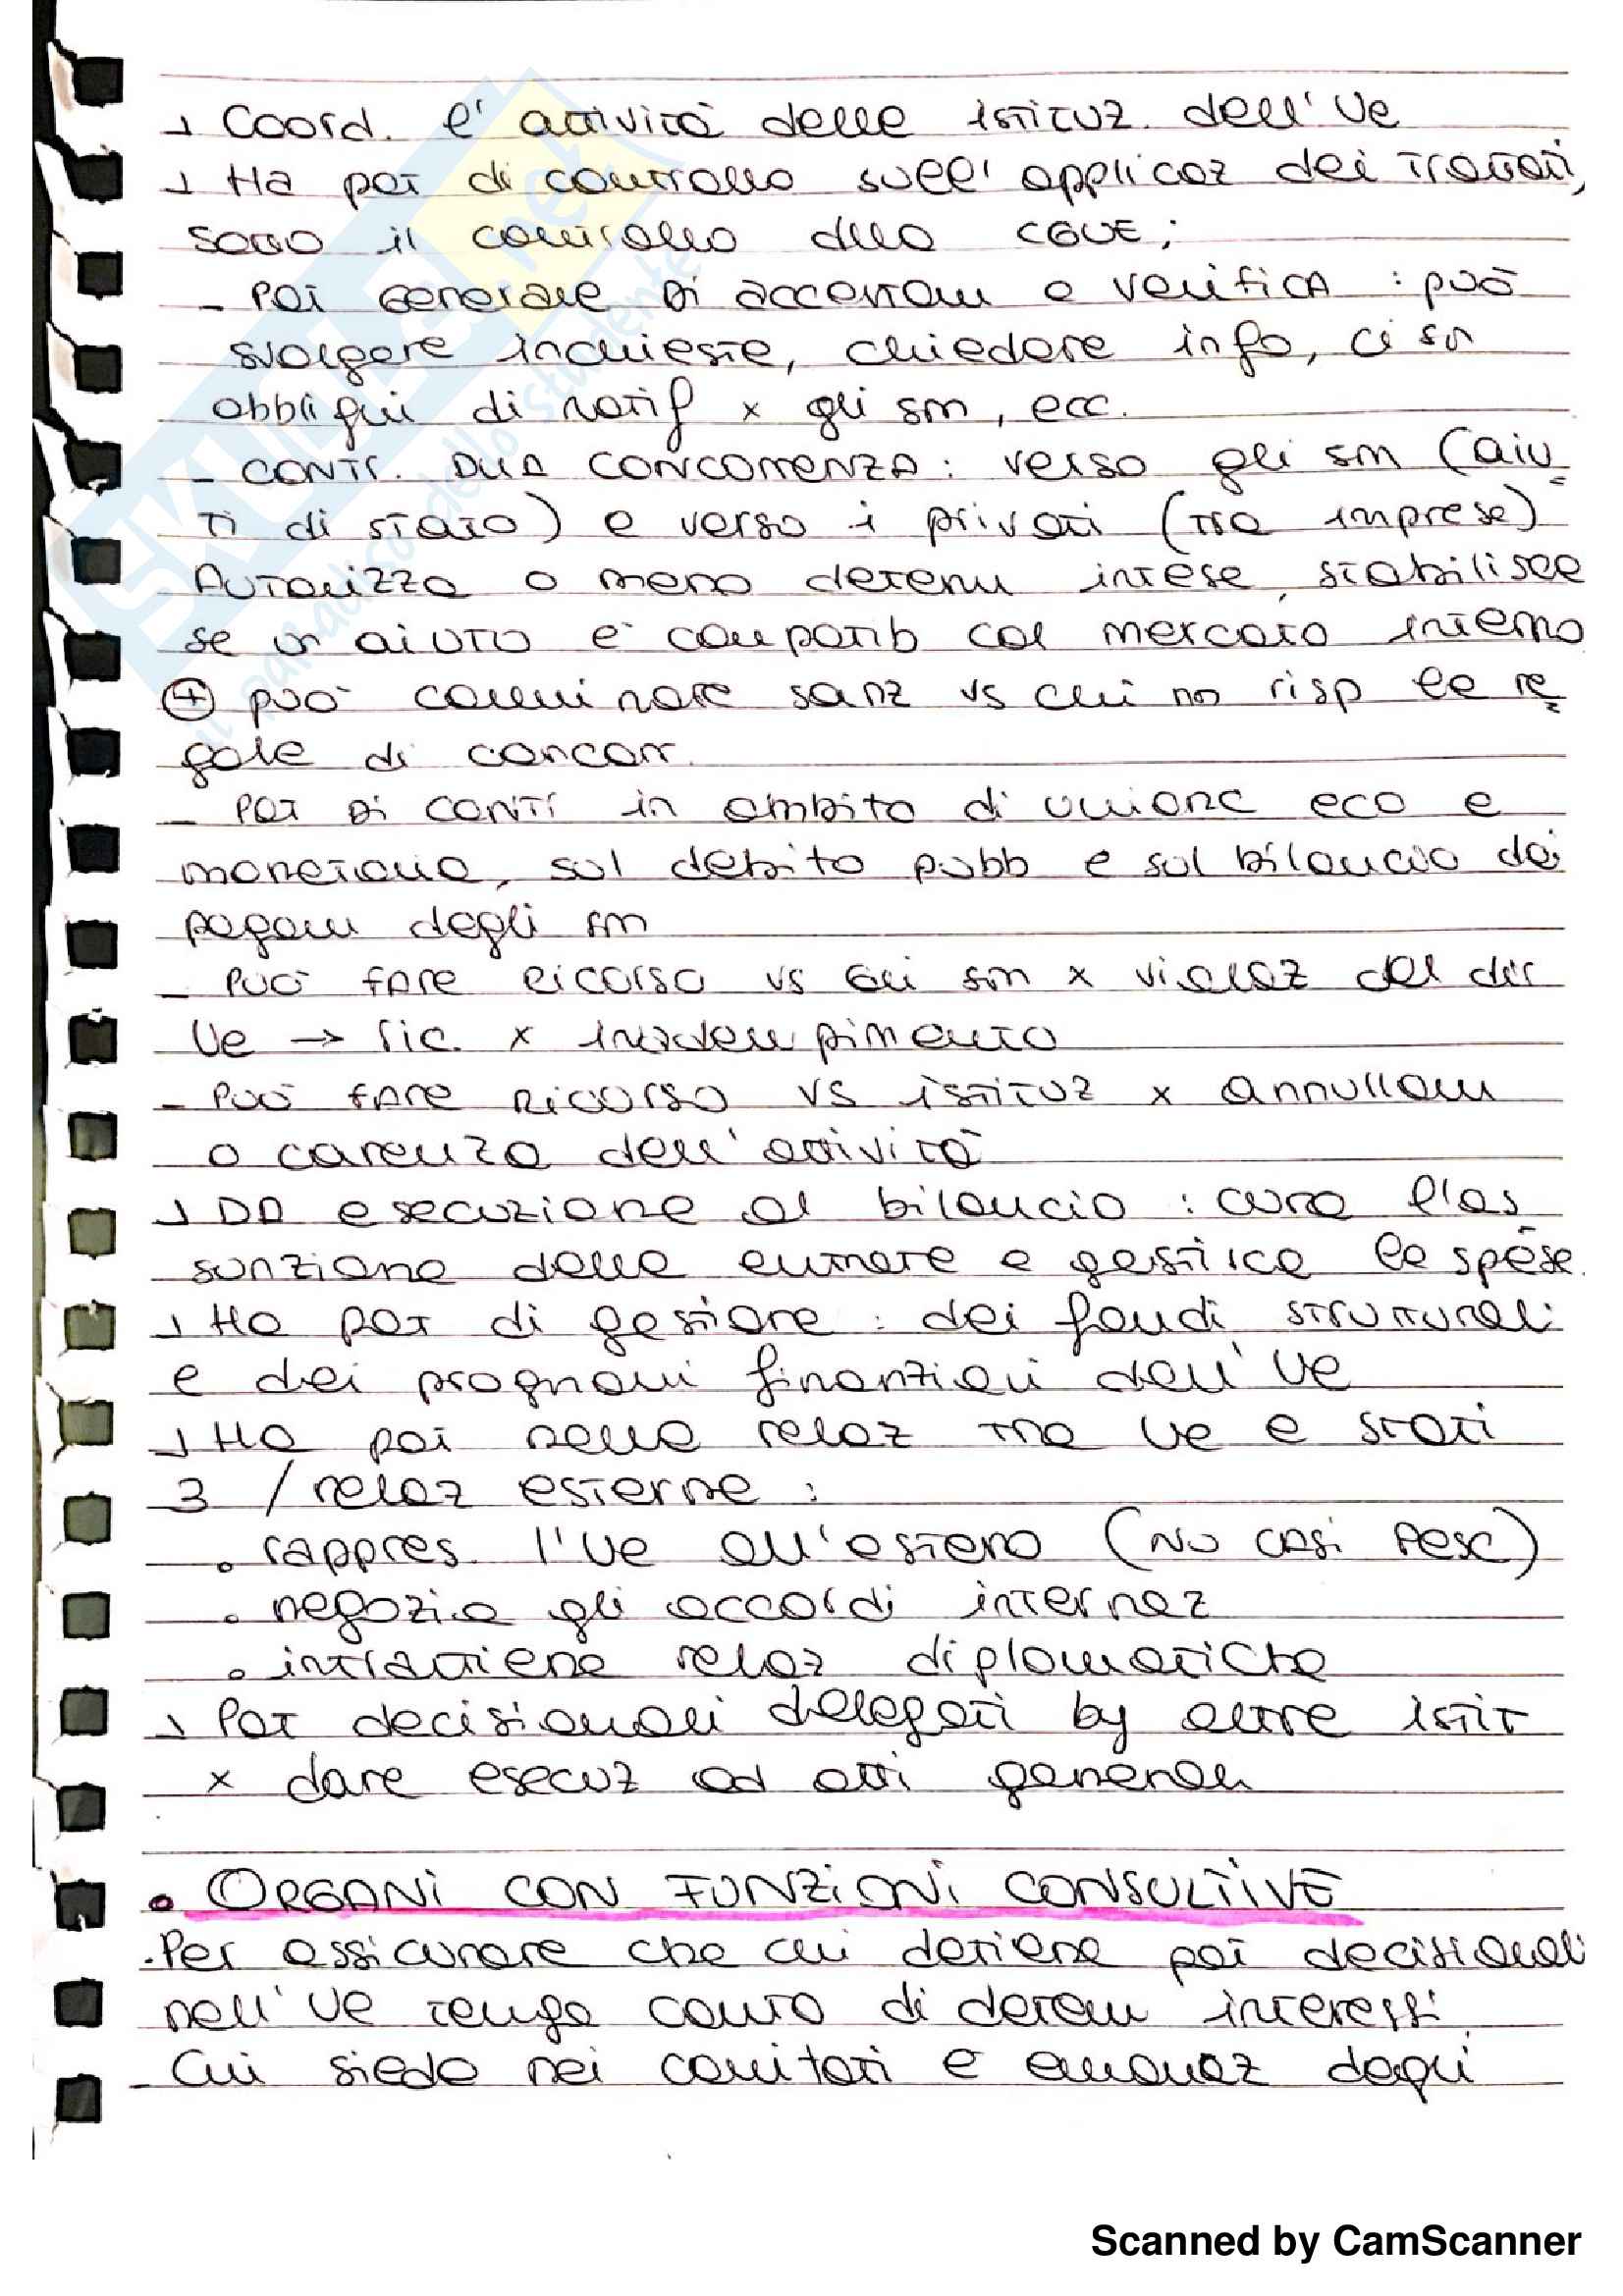 → Coord. l'attività delle istituz. dell'Ue
→ Ha pot di controllo sull'applicaz dei Trattati,
sotto il controllo dlla CGUE;
- Pot Generale Di accertam e verifica : può
svolgere inchieste, chiedere info, ci sn
obblighi di notif x gli sm, ecc.
- CONTR. DLLA CONCORRENZA : verso gli sm (aiu
ti di stato) e verso i privati (tra imprese)
Autorizza o meno determ intese, stabilisce
se un aiuto è compatib col mercato interno
+ può comminare sanz vs chi nn risp le re
gole di concorr.
- Pot Di CONTR in ambito di unione eco e
monetaria, sul debito pubb e sul bilancio dei
pagam degli sm
- Può fare ricorso vs Gli sm x violaz del dir
Ue → ric. x inadempimento
- Può fare ricorso vs istituz x annullam
o carenza dell'attività
→ DA esecuzione al bilancio : cura l'as
sunzione delle entrate e gestisce le spese.
→ Ha pot di gestione : dei fondi strutturali
e dei programmi finanziari dell'Ue
→ Ha pot nelle relaz tra Ue e stati
3 / relaz esterne :
• rappres. l'Ue all'estero (NO casi Pesc)
• negozia gli accordi internaz
• intrattiene relaz diplomatiche
→ Pot decisionali delegati by altre istit
x dare esecuz ad atti generali
• ORGANI CON FUNZIONI CONSULTIVE
• Per assicurare che chi detiene pot decisionali
nell'Ue tenga conto di determ interessi.
Chi siede nei comitati è emanaz degli
SKUOLA.net
il paradiso dello studente
Scanned by CamScanner